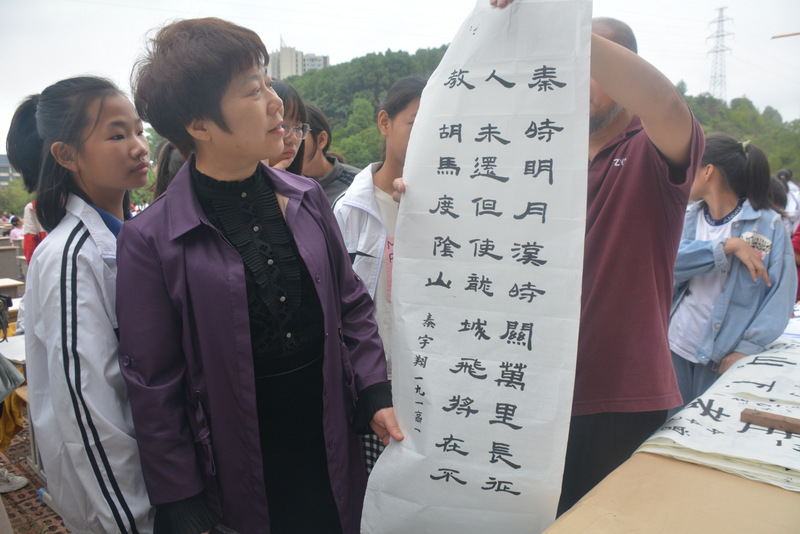 秦時明月漢時關萬里長征
人未還但使龍城飛將在不
教胡馬度陰山
秦宇翔一九一高一